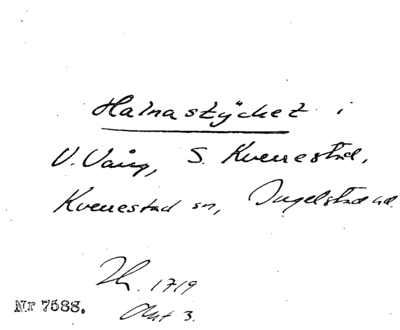 Halnastycket i
V. Vång, S. Kverrestad,
Kverrestad sn, Ingelstad hd.
Th. 1719
Akt 3.
Nr 7588.